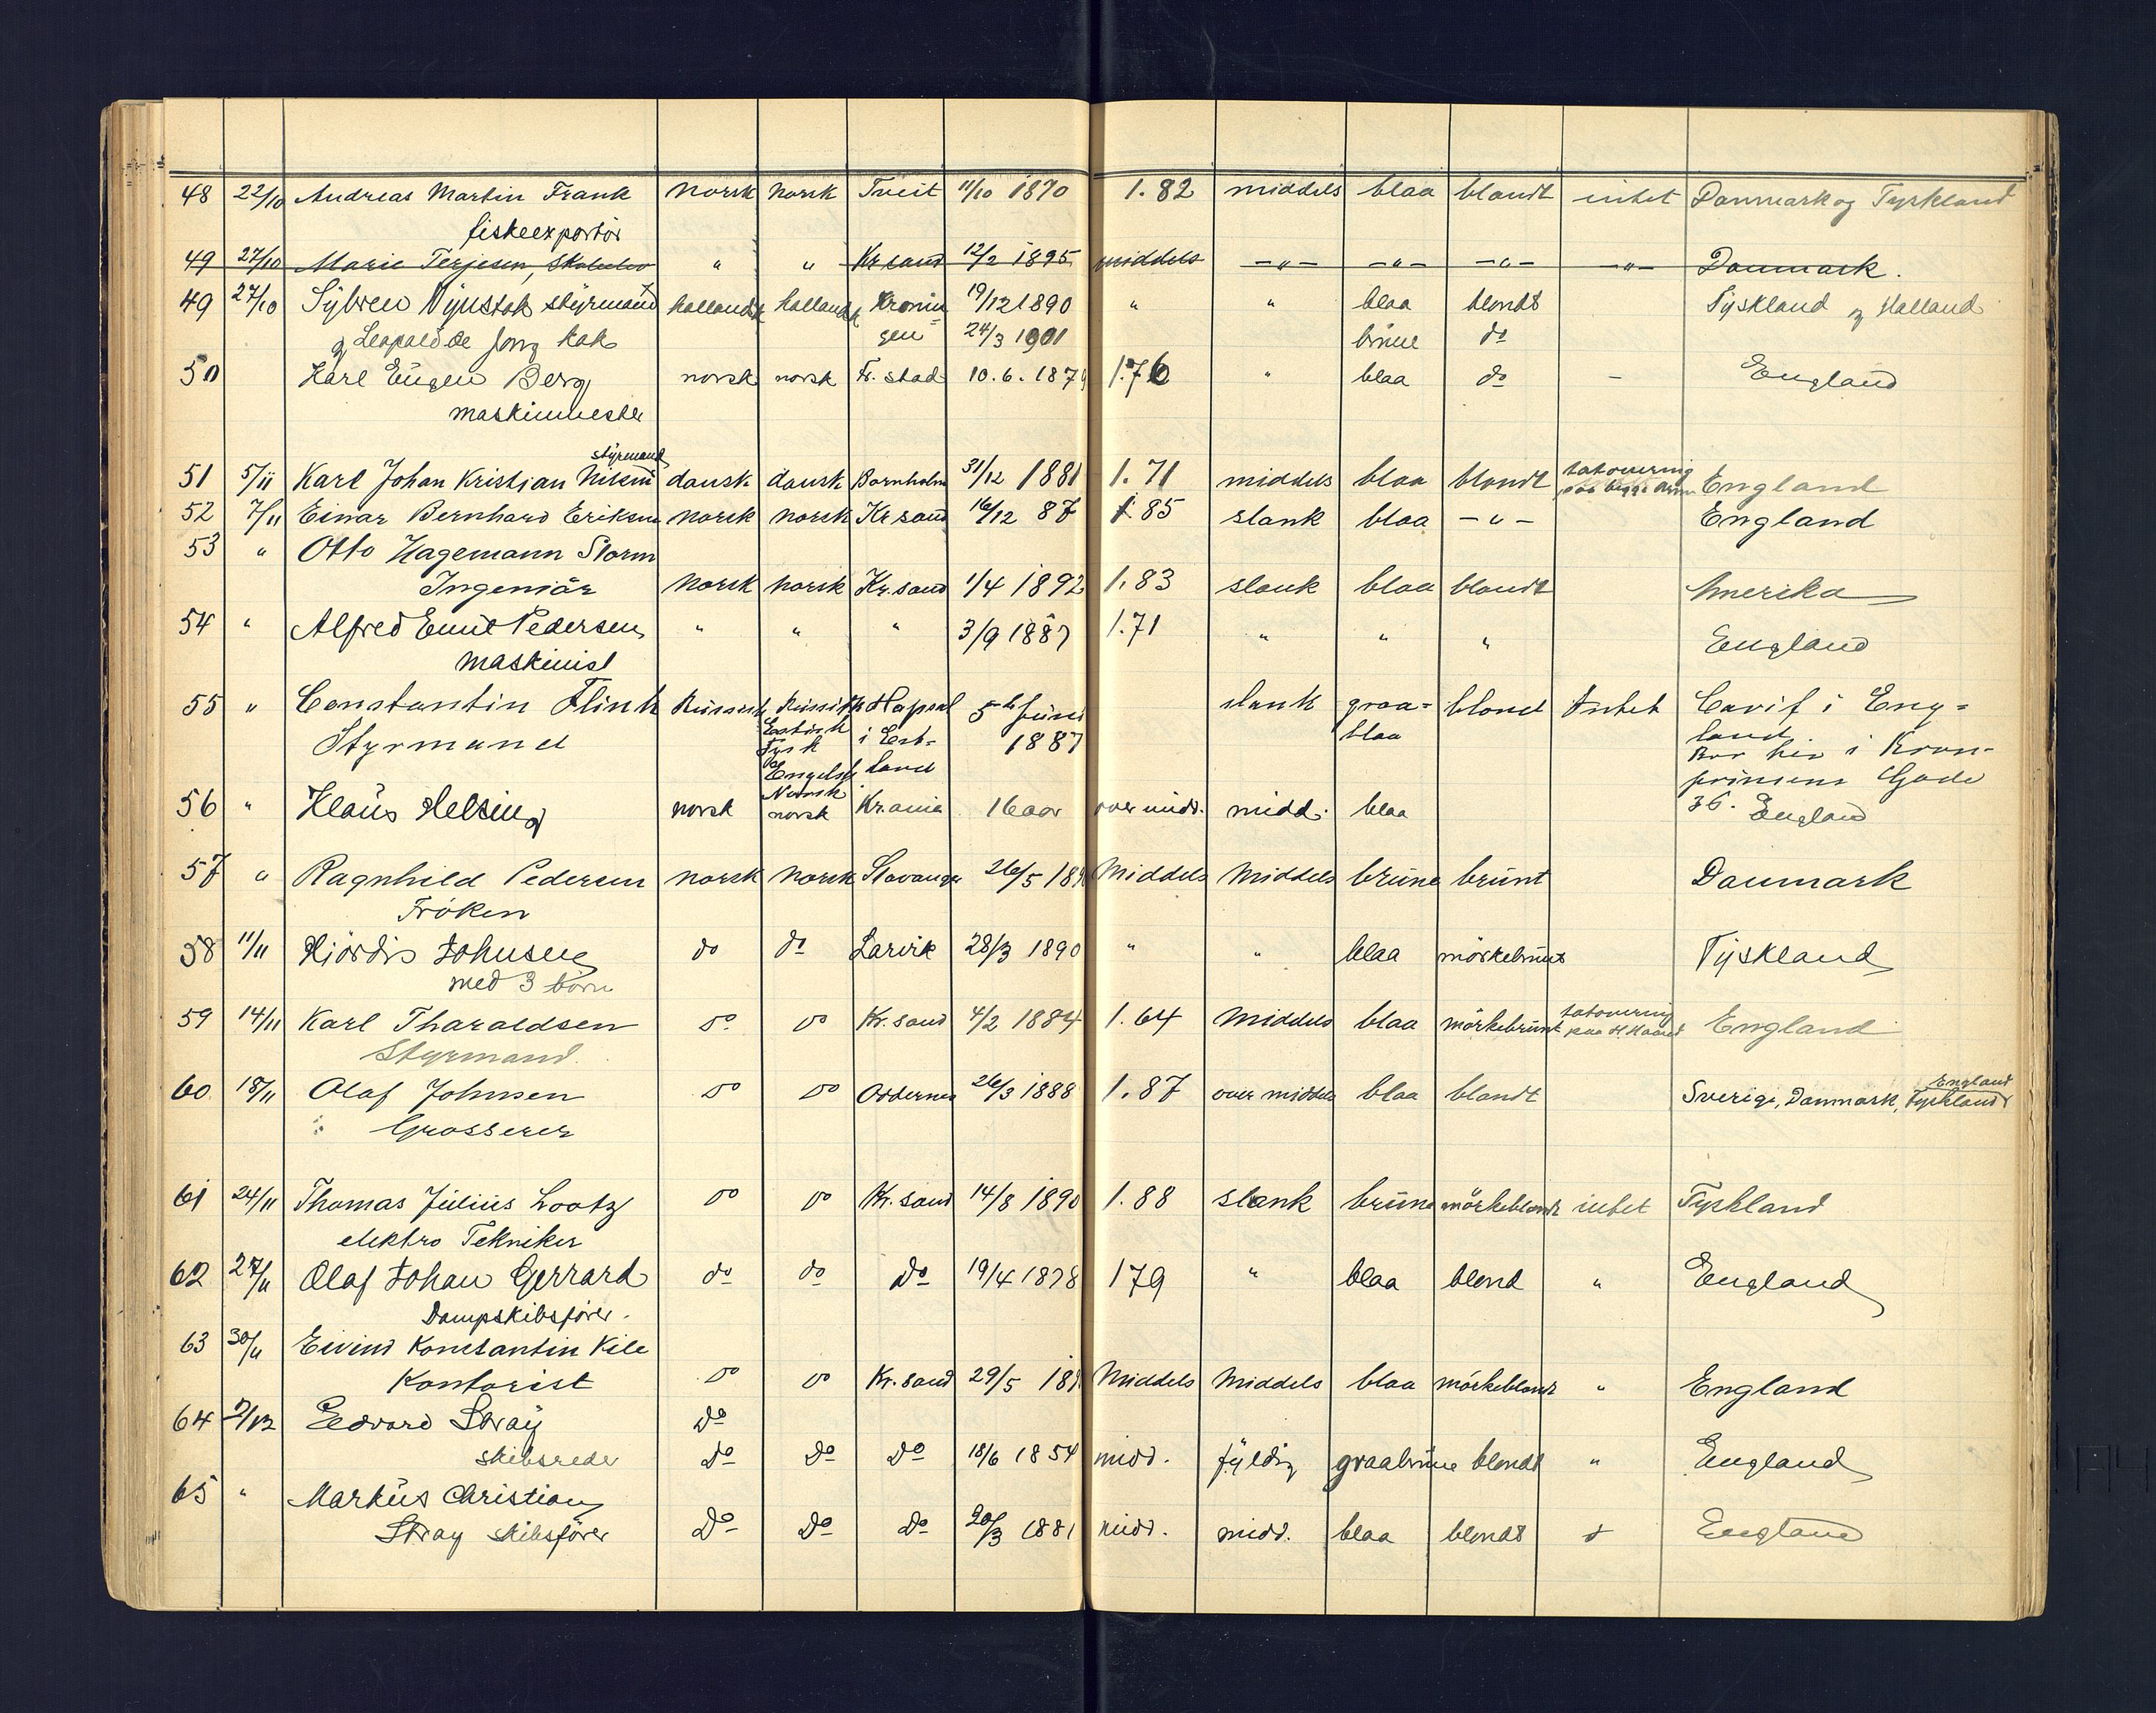 48 22/10 Andreas Martin Frank norsk norsk Tveit 11/10 1870 1.82 middels blaa blondt intet Danmark og Tyskland
fiskeexportör
49 27/10 Marie Terjesen, " " Kr sand 12/2 1895 middels -"- -"- -"- -"- Danmark.
49 27/10 Sybren styrmand hollandsk hollandsk Gronin= 19/12 1890 " " blaa blondt Tyskland og Holland
og Leopold de Jong kok gen 24/3 1901 brune do
50 Karl Eugen Berg norsk norsk Fr. stad 10.6.187 1.76 " blaa do - England
maskinmester
styrmand
51 5/11 Karl Johan Kristian dansk dansk Bornholm 31/12 1881 1.71 middels blaa blondt tatovering England
paa begge Arme
52 7/11 Einar Bernhard Eriksen norsk norsk Kr sand 16/12 87 1.85 slank blaa -"- England
53 " Otto Hagemann Storm
Ingeniör norsk norsk Kr. sand 1/4 1892 1.83 slank blaa blondt Amerika
54 " Alfred Emil Pedersen " " " 3/9 1887 1.71 " " " England
maskinist
55 " Constantin Flink Russisk Russisk Hapsal 5te Juni slank graa= blond Intet Cavif i Eng=
Styrmand Estisk i Est- 1887 blaa land.
Tysk land Bor her i Kron-
Engelsk prinsens Gade
Norsk 36.
56 " Klaus Helsing norsk norsk Kr.ania 16 aar over midd. midd. blaa England
57 " Ragnhild Pedersen norsk norsk Stavanger 26/5 18 Middels Middels brune brunt Danmark
Fröken
58 11/11 Hjördis Johnsen do do Larvik 28/3 1890 " " blaa mörkebrunt Tyskland
med 3 börn
59 14/11 Karl Tharaldsen do do Kr. sand 4/2 1884 1.64 Middels blaa mörkebrunt tatovering England
Styrmand. paa H. Haand
60 18/11 Olaf Johnsen do do Oddernes 26/3 1888 1.87 over middels blaa blondt Sverige, Danmark, Tyskland England
Grosserer
61 24/11 Thomas Julius Lootz do do Kr. sand 14/8 1890 1.88 slank brune mörkeblondt intet Tyskland
elektro Tekniker
62 27/11 Olaf Johan Gerrard do do do 19/4 1878 179 " blaa blond " England
Dampskibsförer.
63 30/11 Eivind Konstantin Kile
Kontorist do do Kr. sand 29/5 18 Middels Middels blaa mörkeblondt " England
64 2/12 Edvard Stray do
skibsreder do do do 18/6 1854 midd. fyldig graabrune blondt " England
65 " Markus Christian
Stray skibsförer do do do 20/3 1881 midd. midd. blaa blondt England